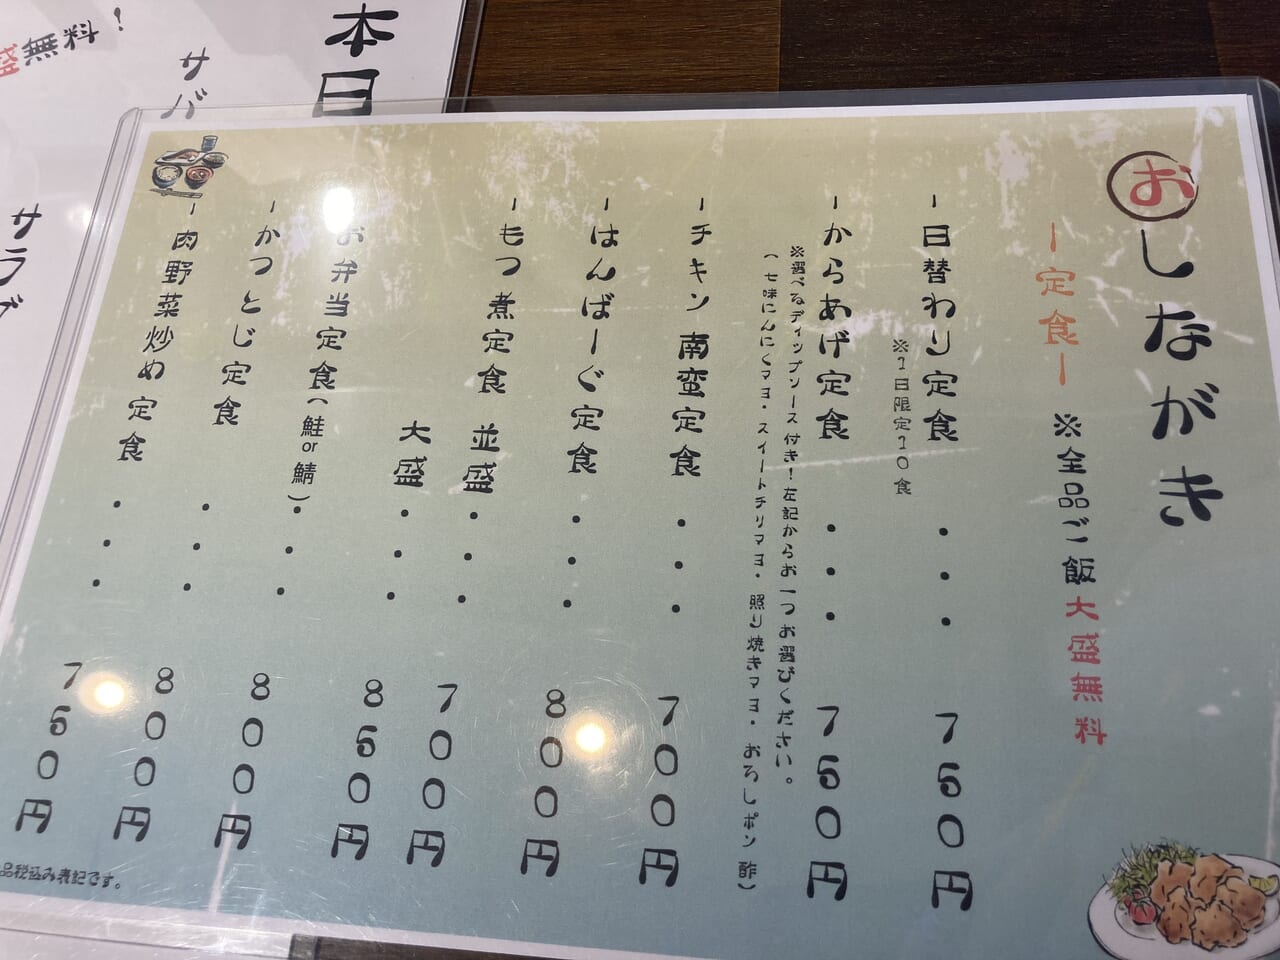 おしながき
ー定食ー ※全品ご飯大盛無料
ー日替わり定食・・・750円
※1日限定10食
ーからあげ定食・・・750円
※選べるディップソース付き!左記からお一つお選びください。
(七味にんにくマヨ・スイートチリマヨ・照り焼きマヨ・おろしポン酢)
ーチキン南蛮定食・・・700円
ーはんばーぐ定食・・・800円
ーもつ煮定食 並盛・・・700円
大盛・・・850円
お弁当定食(鮭or鯖)・・・800円
ーかつとじ定食・・・800円
ー肉野菜炒め定食・・・750円
品税込み表記です。
本日
サバ
盛無料!
サラダ